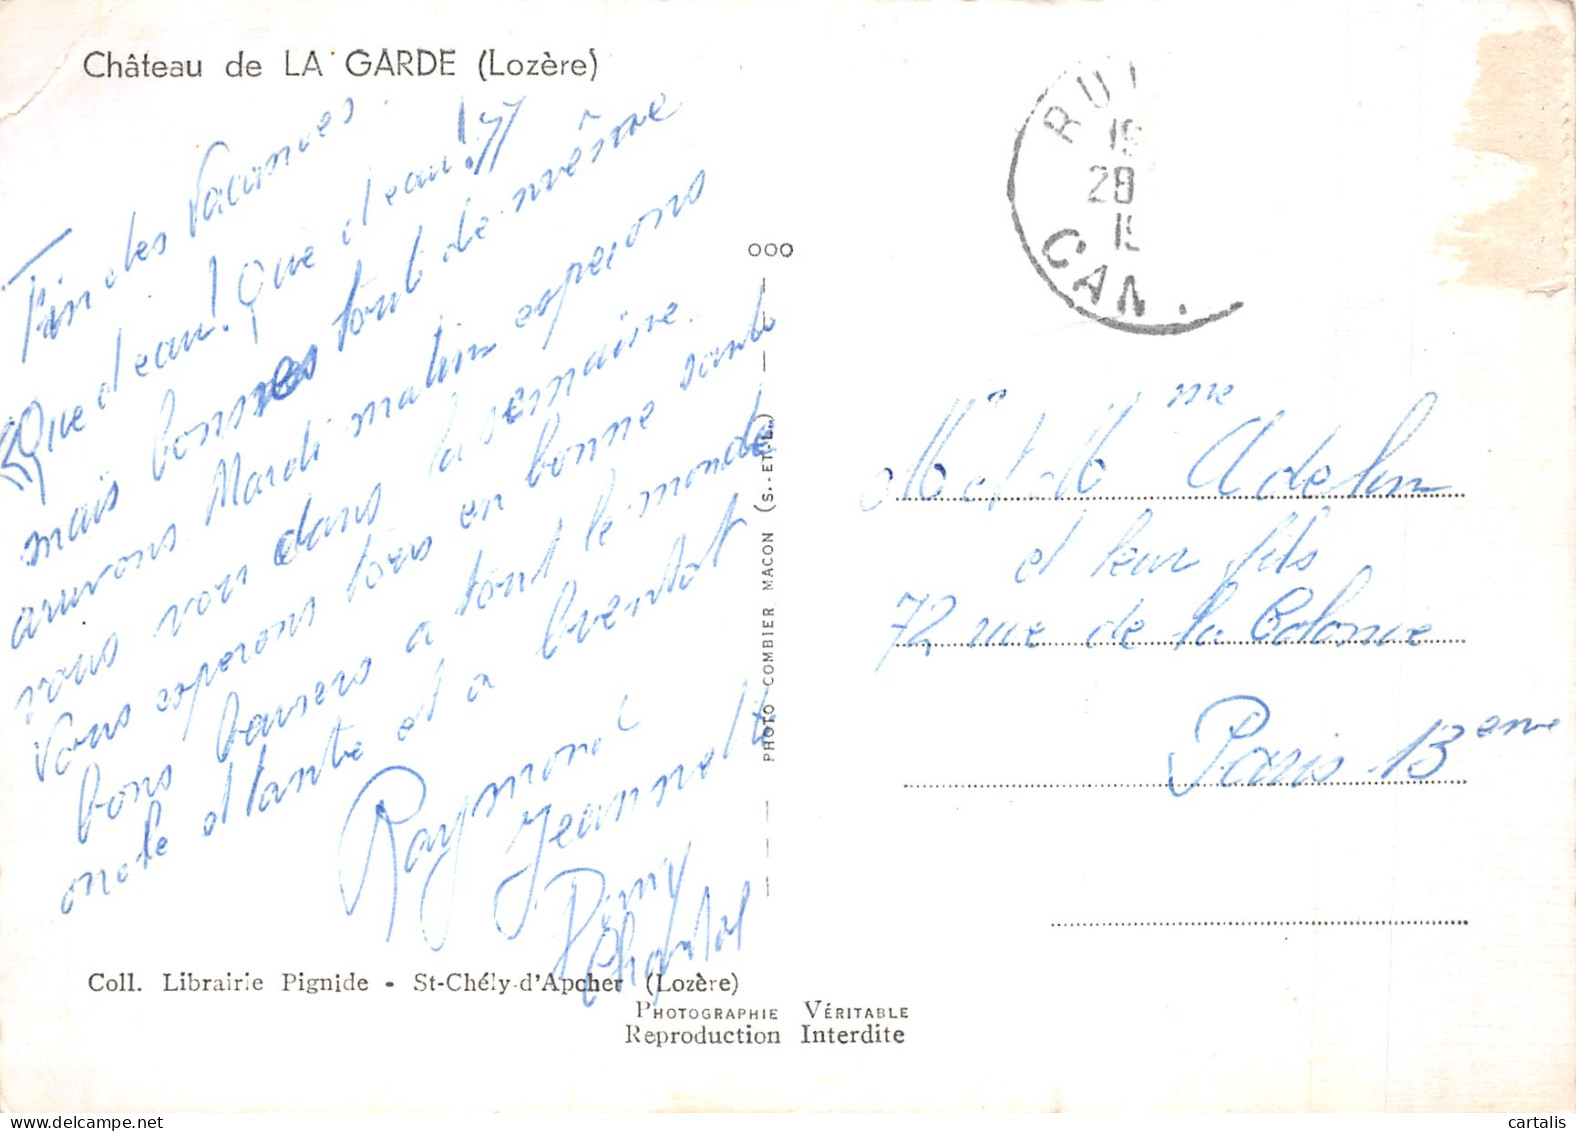 Château de LA GARDE (Lozère)
Fin des Vacances.
Que d'eau! Que d'eau!
mais bonnes tout de même
arrivons Mardi matin esperons
vous voir dans la semaine.
Vous esperons tous en bonne santé
bons baisers a tout le monde
oncle et tante et a
Raymond
Jeannette
Chantal
Coll. Librairie Pignide - St-Chély-d'Apcher (Lozère)
PHOTOGRAPHIE VÉRITABLE
Reproduction Interdite
PHOTO COMBIER MACON (S.-ET-L.)
19
28
CAN.
M. et Mme
et leur fils
72 rue de la Colonie
Paris 13eme
cartalis